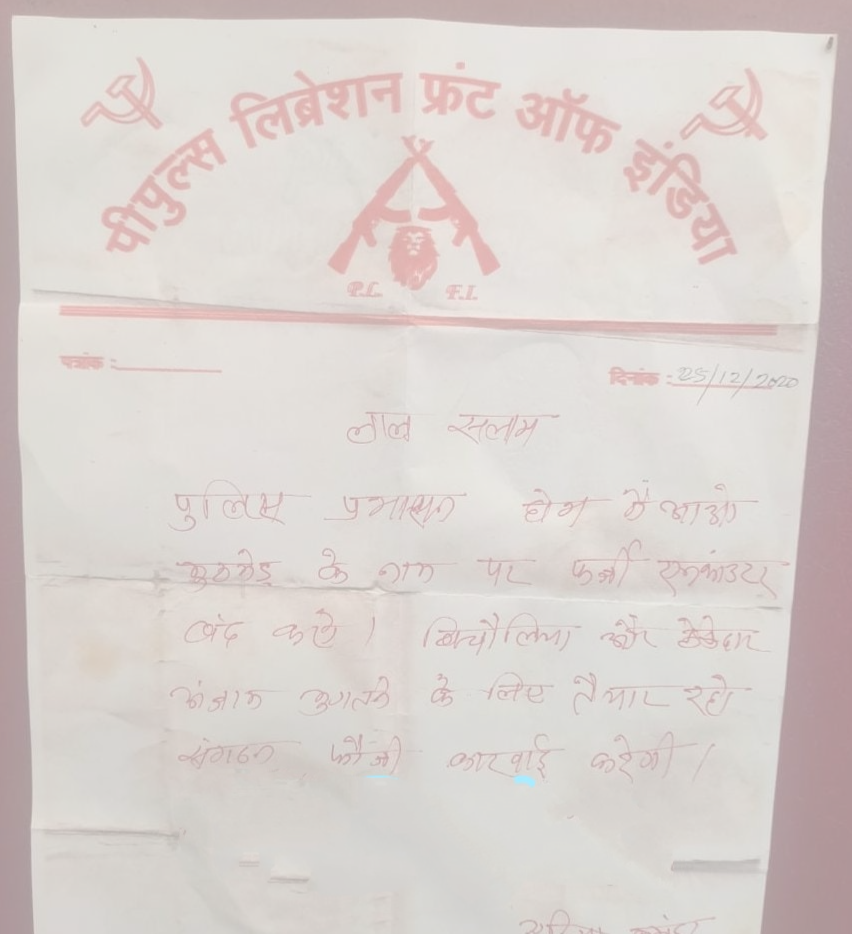 पीपुल्स लिब्रेशन फ्रंट ऑफ इंडिया
P.L. F.I.
पत्रांक :
दिनांक : 25/12/2020
लाल सलाम
पुलिस प्रशासन होश में आओ
मुठभेड़ के नाम पर फर्जी एनकांउटर
बंद करो । बिचौलिया और ठेकेदार
अंजाम भुगतने के लिए तैयार रहो
संगठन फौजी कारवाई करेगी ।